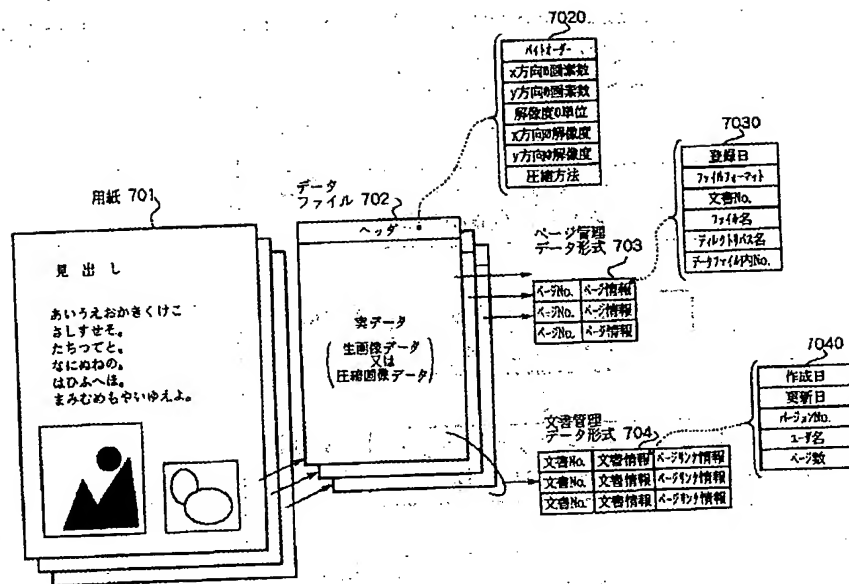 7020
バイトオーダー
x方向の画素数
y方向の画素数
解像度の単位
x方向の解像度
y方向の解像度
圧縮方法
7030
登録日
ファイルフォーマット
文書No.
ファイル名
ディレクトリパス名
データファイル内No.
用紙 701
見出し
あいうえおかきくけこ
さしすせそ。
たちつてと。
なにぬねの。
はひふへほ。
まみむめもやいゆえよ。
データ
ファイル 702
ヘッダ
実データ
生画像データ
又は
圧縮画像データ
ページ管理
データ形式 703
ページNo. ページ情報
ページNo. ページ情報
ページNo. ページ情報
7040
作成日
更新日
バージョンNo.
ユーザ名
ページ数
文書管理
データ形式 704
文書No. 文書情報 ページリンク情報
文書No. 文書情報 ページリンク情報
文書No. 文書情報 ページリンク情報